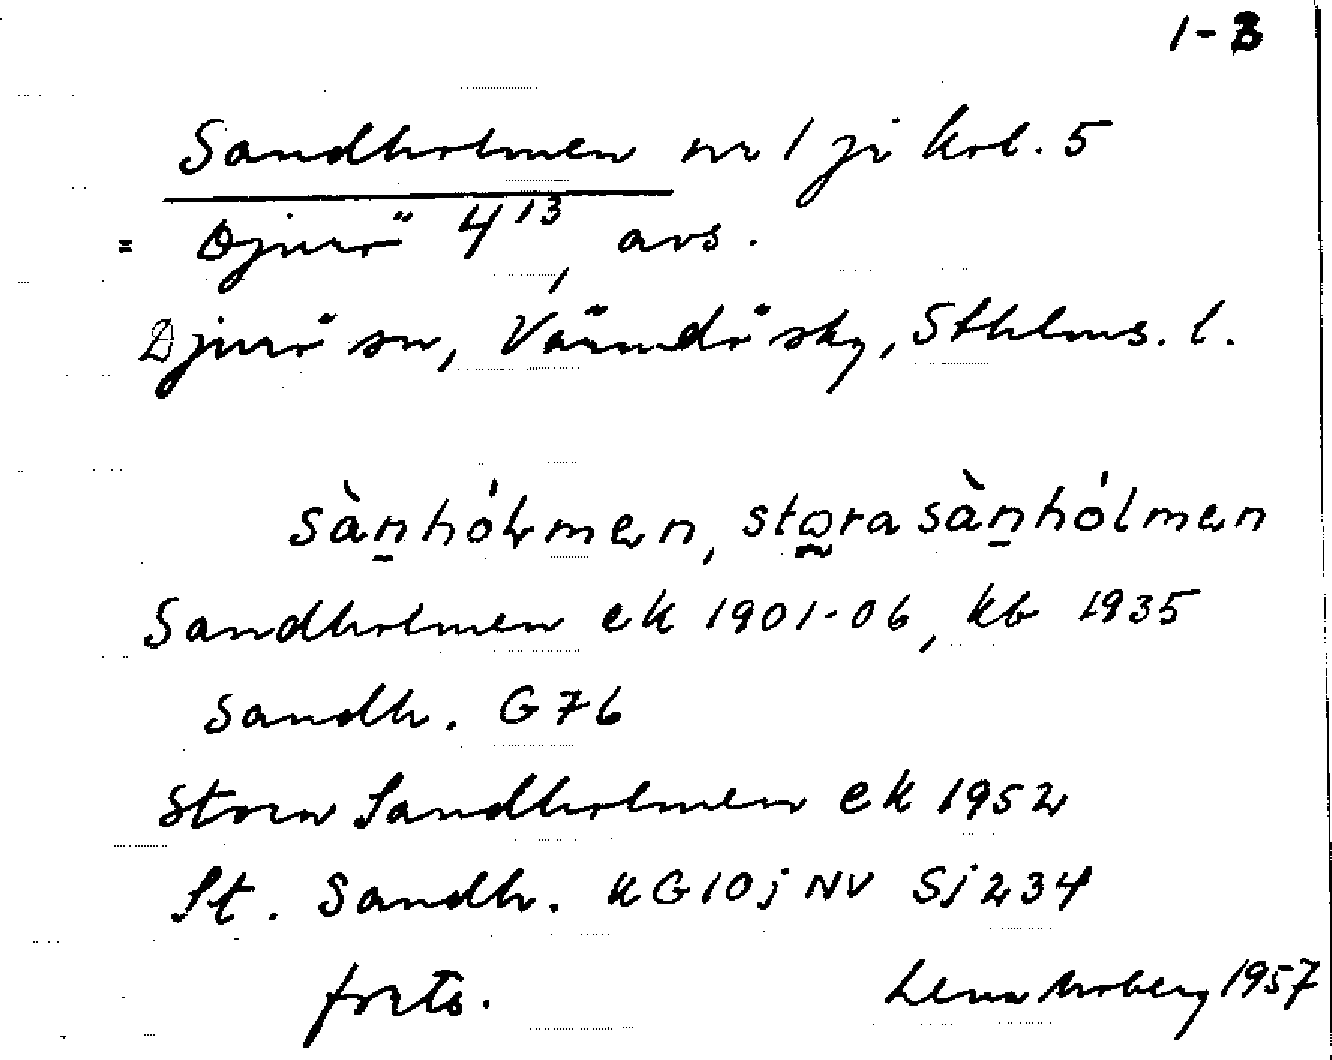 1-3
Sandholmen nr 1 på krt. 5
= Djurö 4¹³, avs.
Djurö sn, Värmdö sky, Sthlms. l.
sàn̲hólmen, stora sàn̲hólmen
Sandholmen ek 1901-06, kb 1935
Sandh. G76
Stora Sandholmen ek 1952
St. Sandh. kG10j NV Sj234
forts. Lena Moberg 1957